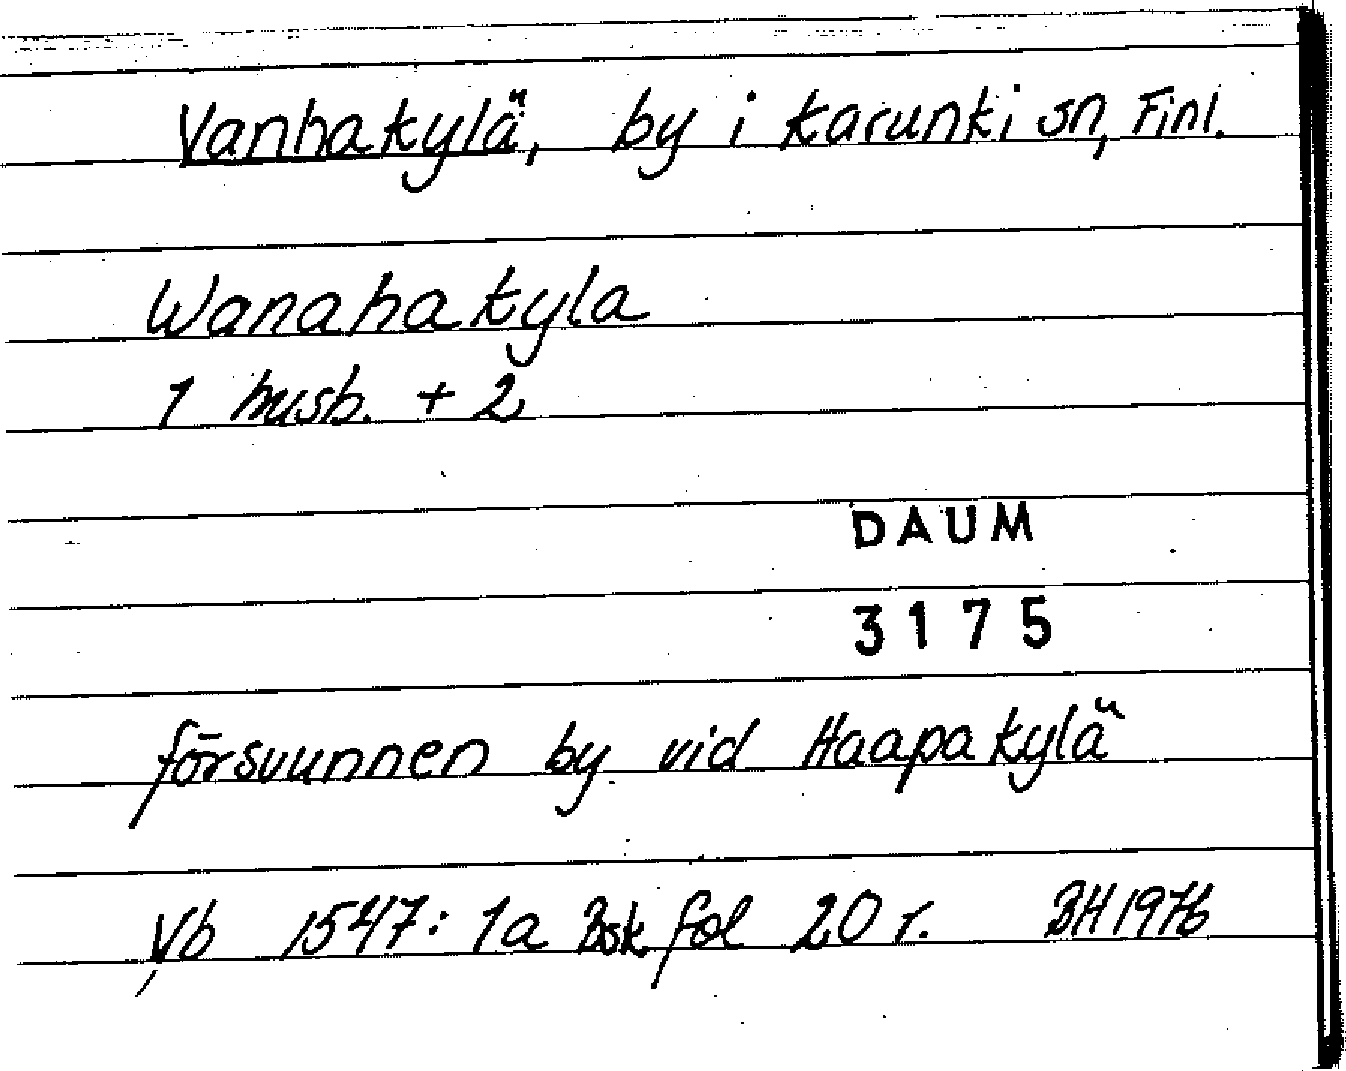 Vanhakylä, by i Karunki sn, Finl.
Wanahakyla
1 husb. + 2
DAUM
3175
försvunnen by vid Haapakylä
Vb 1547: 1a Bsk fol 20 r. BH 1976